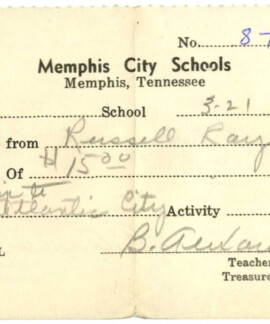 No. 8-
Memphis City Schools
Memphis, Tennessee
School 3-21
from Russell Ray
Of $15.00
to
Atlantic City Activity
B.
Teacher
Treasure